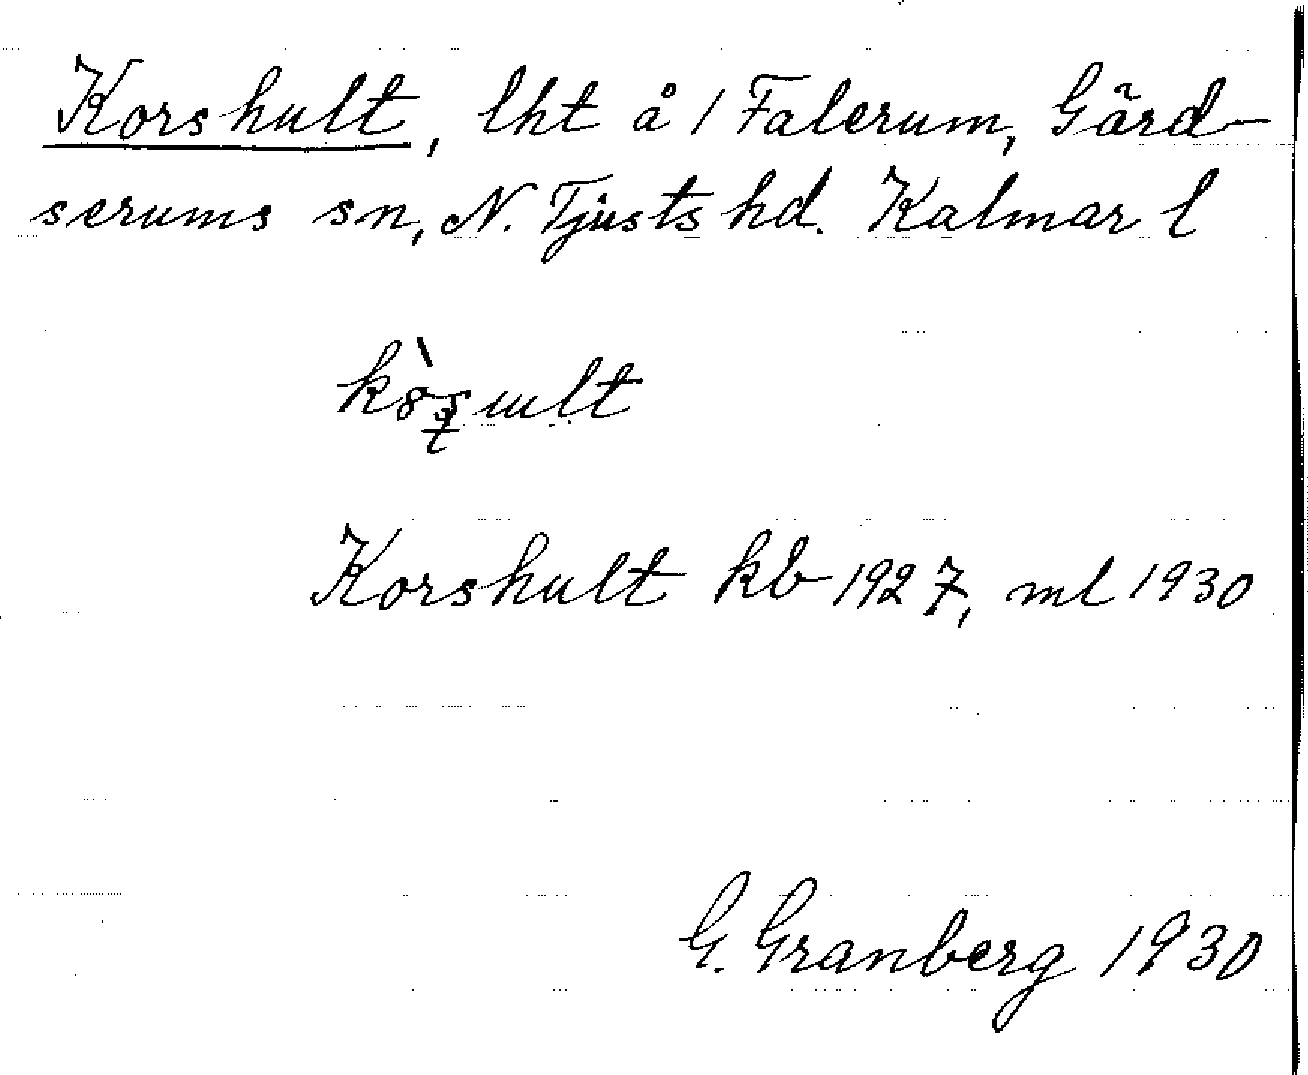 Korshult, lht å 1 Falerum, Gärd-
serums sn, N. Tjusts hd. Kalmar l
Korshult kb 1927, ml 1930
G. Granberg 1930